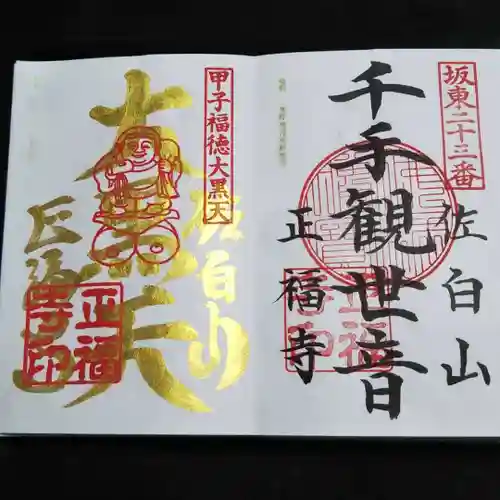 坂東二十三番
佐白山
千手観世音
正福寺
正福寺印
甲子福徳大黒天
佐白山
大黒天
正福寺
正福寺印